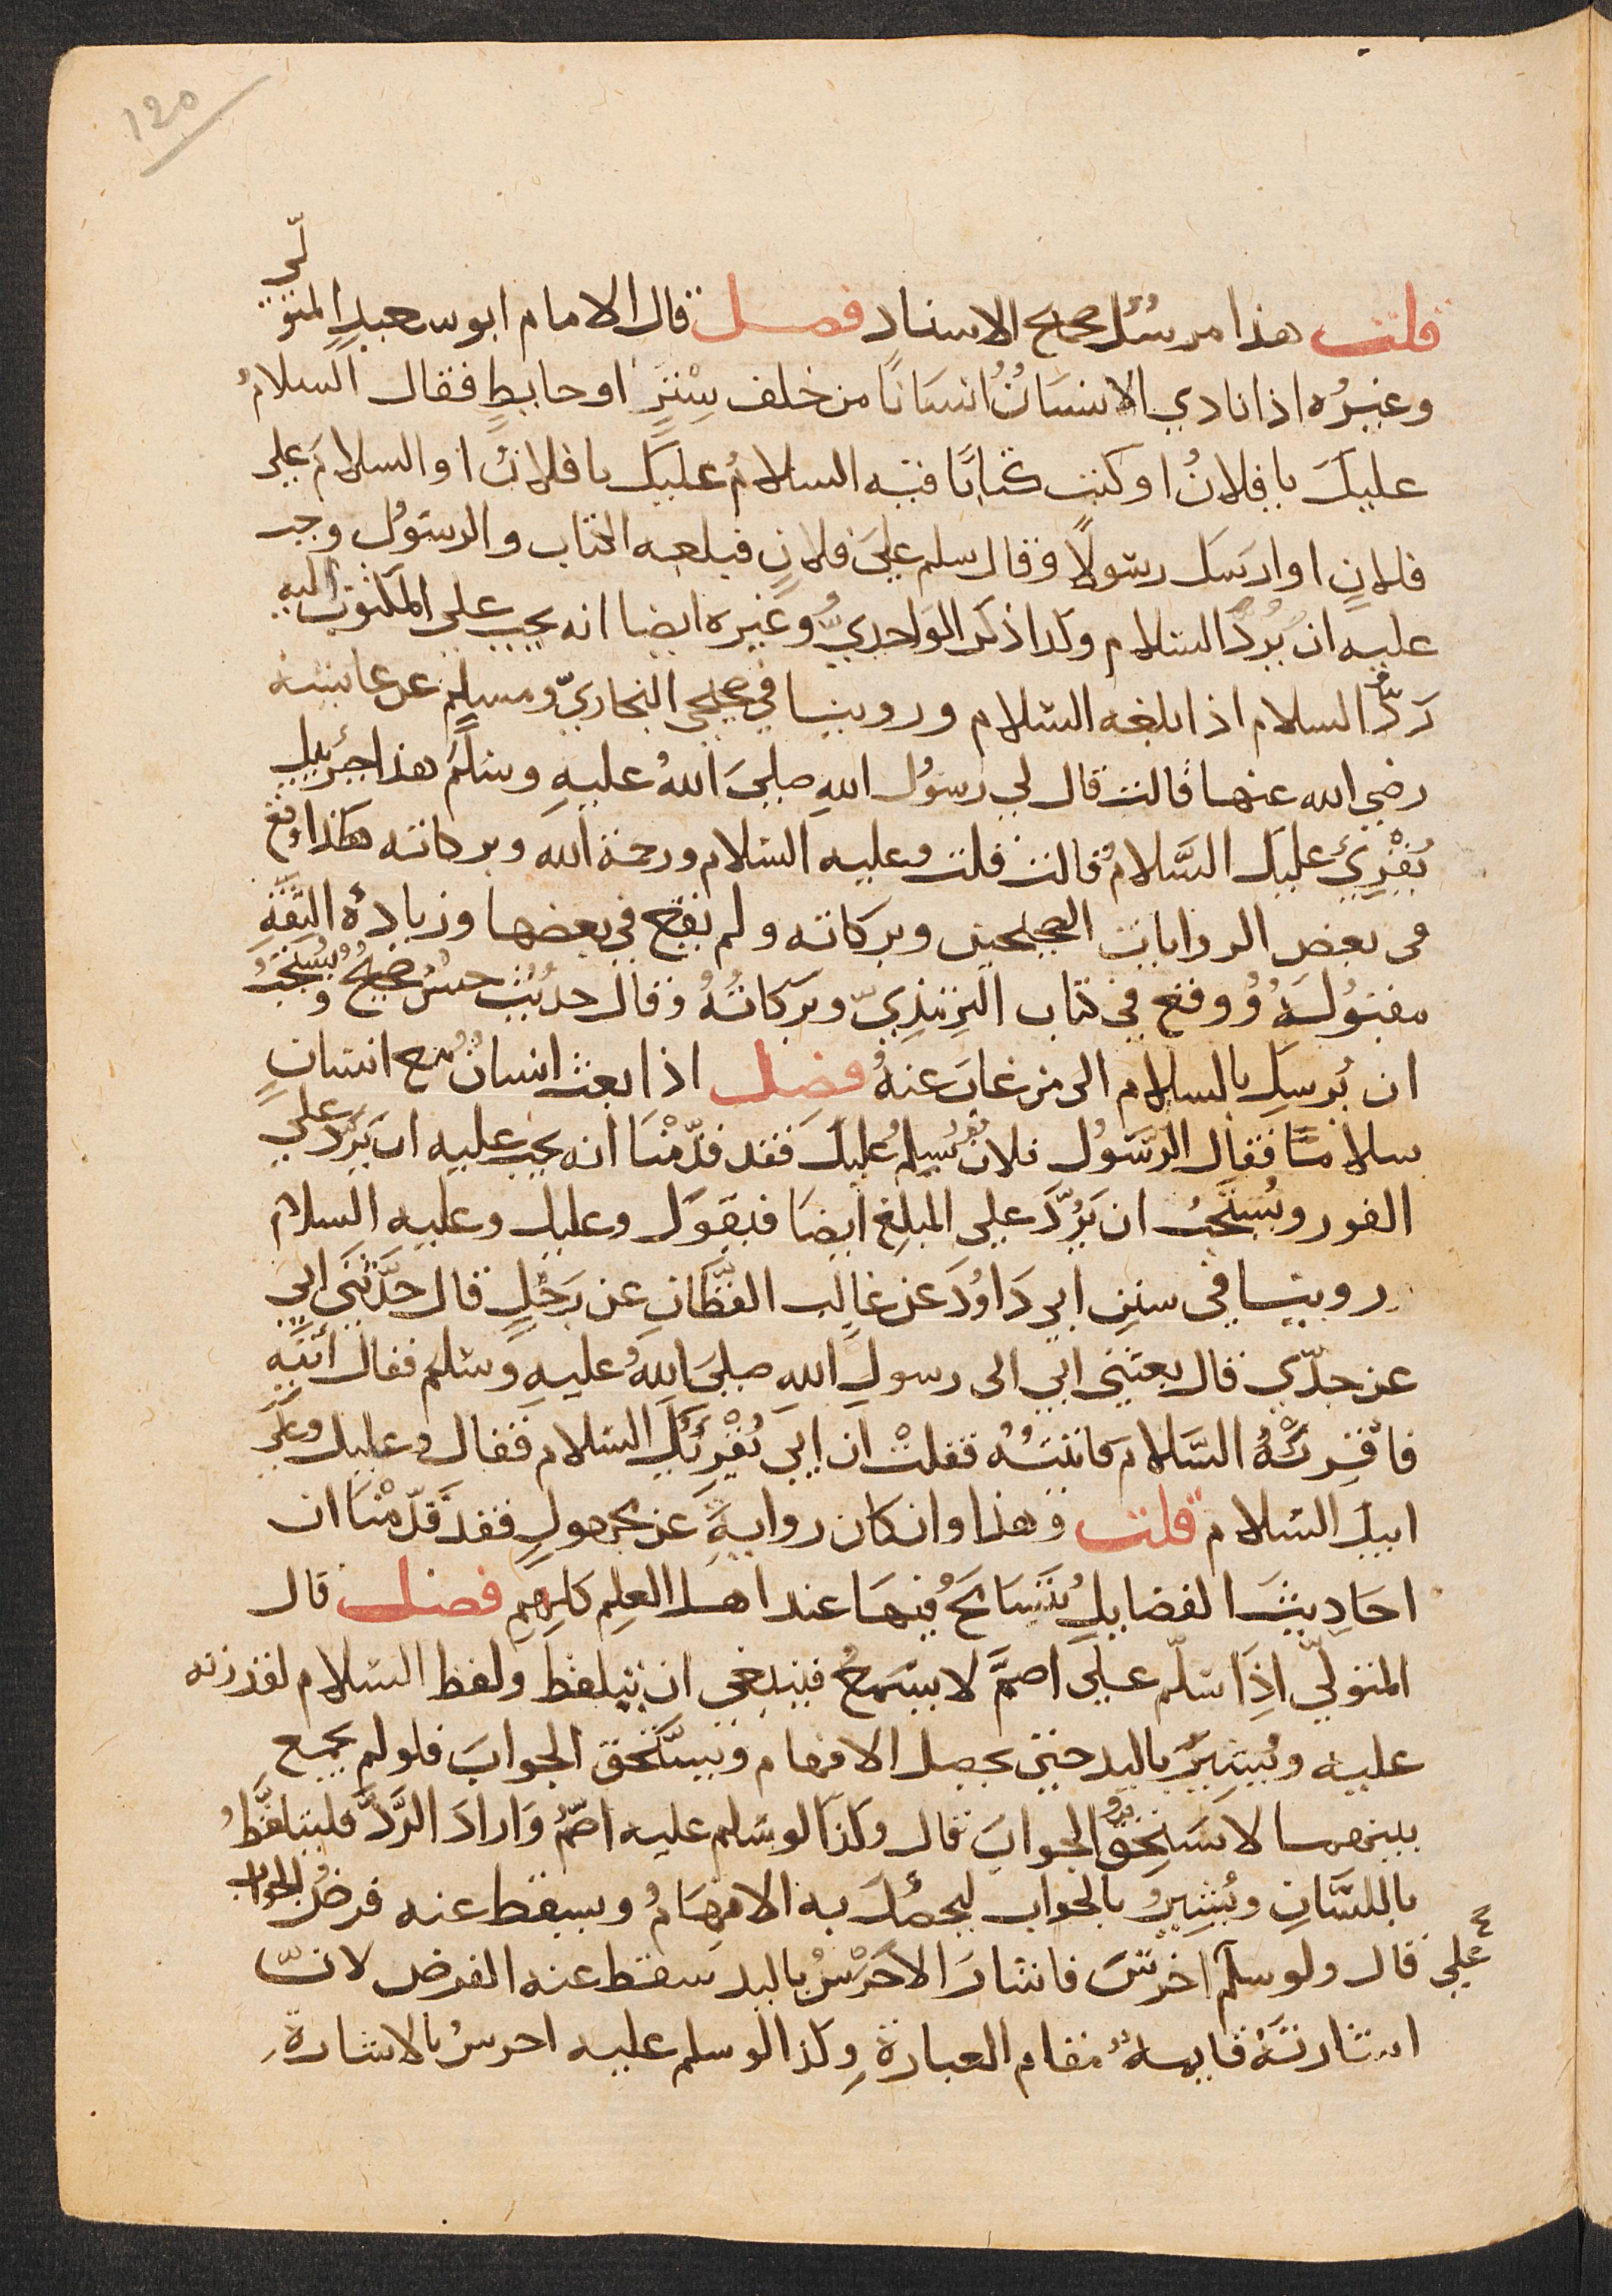 120
قلت هذا مرسل صحيح الاسناد فصل قال الامام ابو سعيد المتولّي
وغيرُه اذا نادي الانسَانُ انسَانًا من خلف سِتْرٍ او حايطٍ فقال السلامُ
عليكَ يا فلانُ او كتب كتابًا فيه السلامُ عليكَ يا فلانُ او السلامُ علي
فلانٍ او ارسَلَ رسُولًا وقال سلم عليَ فلانٍ فبلغه الكتاب والرسُولُ وجب
عليه ان يَرُدَّ السلام وكذا ذكر الوَاحِديُّ وغيره ايضا انه يجب علي المكتُوب اليه
رَدُّ السلام اذا بلغه السّلام وروينا في صحيحي البخاريّ ومسلمٍ عن عايشه
رضي الله عنها قالت قال لي رسُول اللهِ صليَ اللهُ عليهِ وسَلّمَ هذا جبرَئيل
يُقْرِئُ عليكَ السَّلامُ قالت قلت وعليه السّلام ورحمة الله وبركاته هكذا وقع
في بعض الروايات الصحيحين وبركاته ولم يقع في بعضها وزيادةُ الثّقَةِ
مقبُولَهٌ ووقع في كتاب التِرمِذِيّ وبَركاتُهُ وقال حديث حسنٌ صحيحٌ ويُستحَبُّ
ان يُرسِلَ بالسلام الى من غابَ عنهُ فصل اذا بعث انسانٌ مع انسانٍ
سلامًا فقال الرَّسُولُ فلانٌ يُسلِمُ عليكَ فقد قدّمْنَا انه يجب عليه ان يَرُدَّ علي
الفور ويُسْتَحَبُّ ان يَرُدَّ علي المبلِغِ ايضَا فيقوَل وعليك وعليه السلام
روينا في سننِ ابي دَاوُدَ عن غالب القَطَّانِ عن رَجُلٍ قال حَدَّثَني ابي
عن جدّي قال بعثني ابي الى رسولِ اللهِ صليَ اللهُ عليهِ وسَلم فقال ائتِهِ
فاقْرِئْهُ السَّلامَ فاتيتُهُ فقلتْ ان ابي يُقْرِئُكَ السّلام فقال وعليك وعلَي
ابيكَ السّلام قلت وهذا وان كان روايةً عن مجهولٍ فقد قَدَّمْنَا ان
احَادِيثَ الفضايلِ يُتَسَامَحُ فيهَا عند اهل العلمِ كلهم فصل قال
المتولّي اذَا سَلّم عليَ اصمَّ لا يسْمعُ فينبغي ان يتلفظ ولفظ السّلام لقدرته
عليه ويُشيرُ باليد حتي يحصل الافهام ويستَحق الجوابَ فلو لم يجمع
بينهما لا يَسْتَحِقُّ الجوابَ قال وكذَا لو سَلم عليه اصمُّ وَارادَ الرَّدَّ فليتلفَّظُ
باللسَّانِ ويُشِيرُ بالجواب ليحصُلَ به الافهَامُ ويسقط عنه فرضُ الجواب
قال ولو سلّم علي اخرَسَ فاشارَ الاَخْرَسُ باليد سقط عنه الفرض لانّ
اشارتَهُ قايمةٌ مقام العبارةِ وكذا لو سلم عليه اخرسُ بالاشارةِ